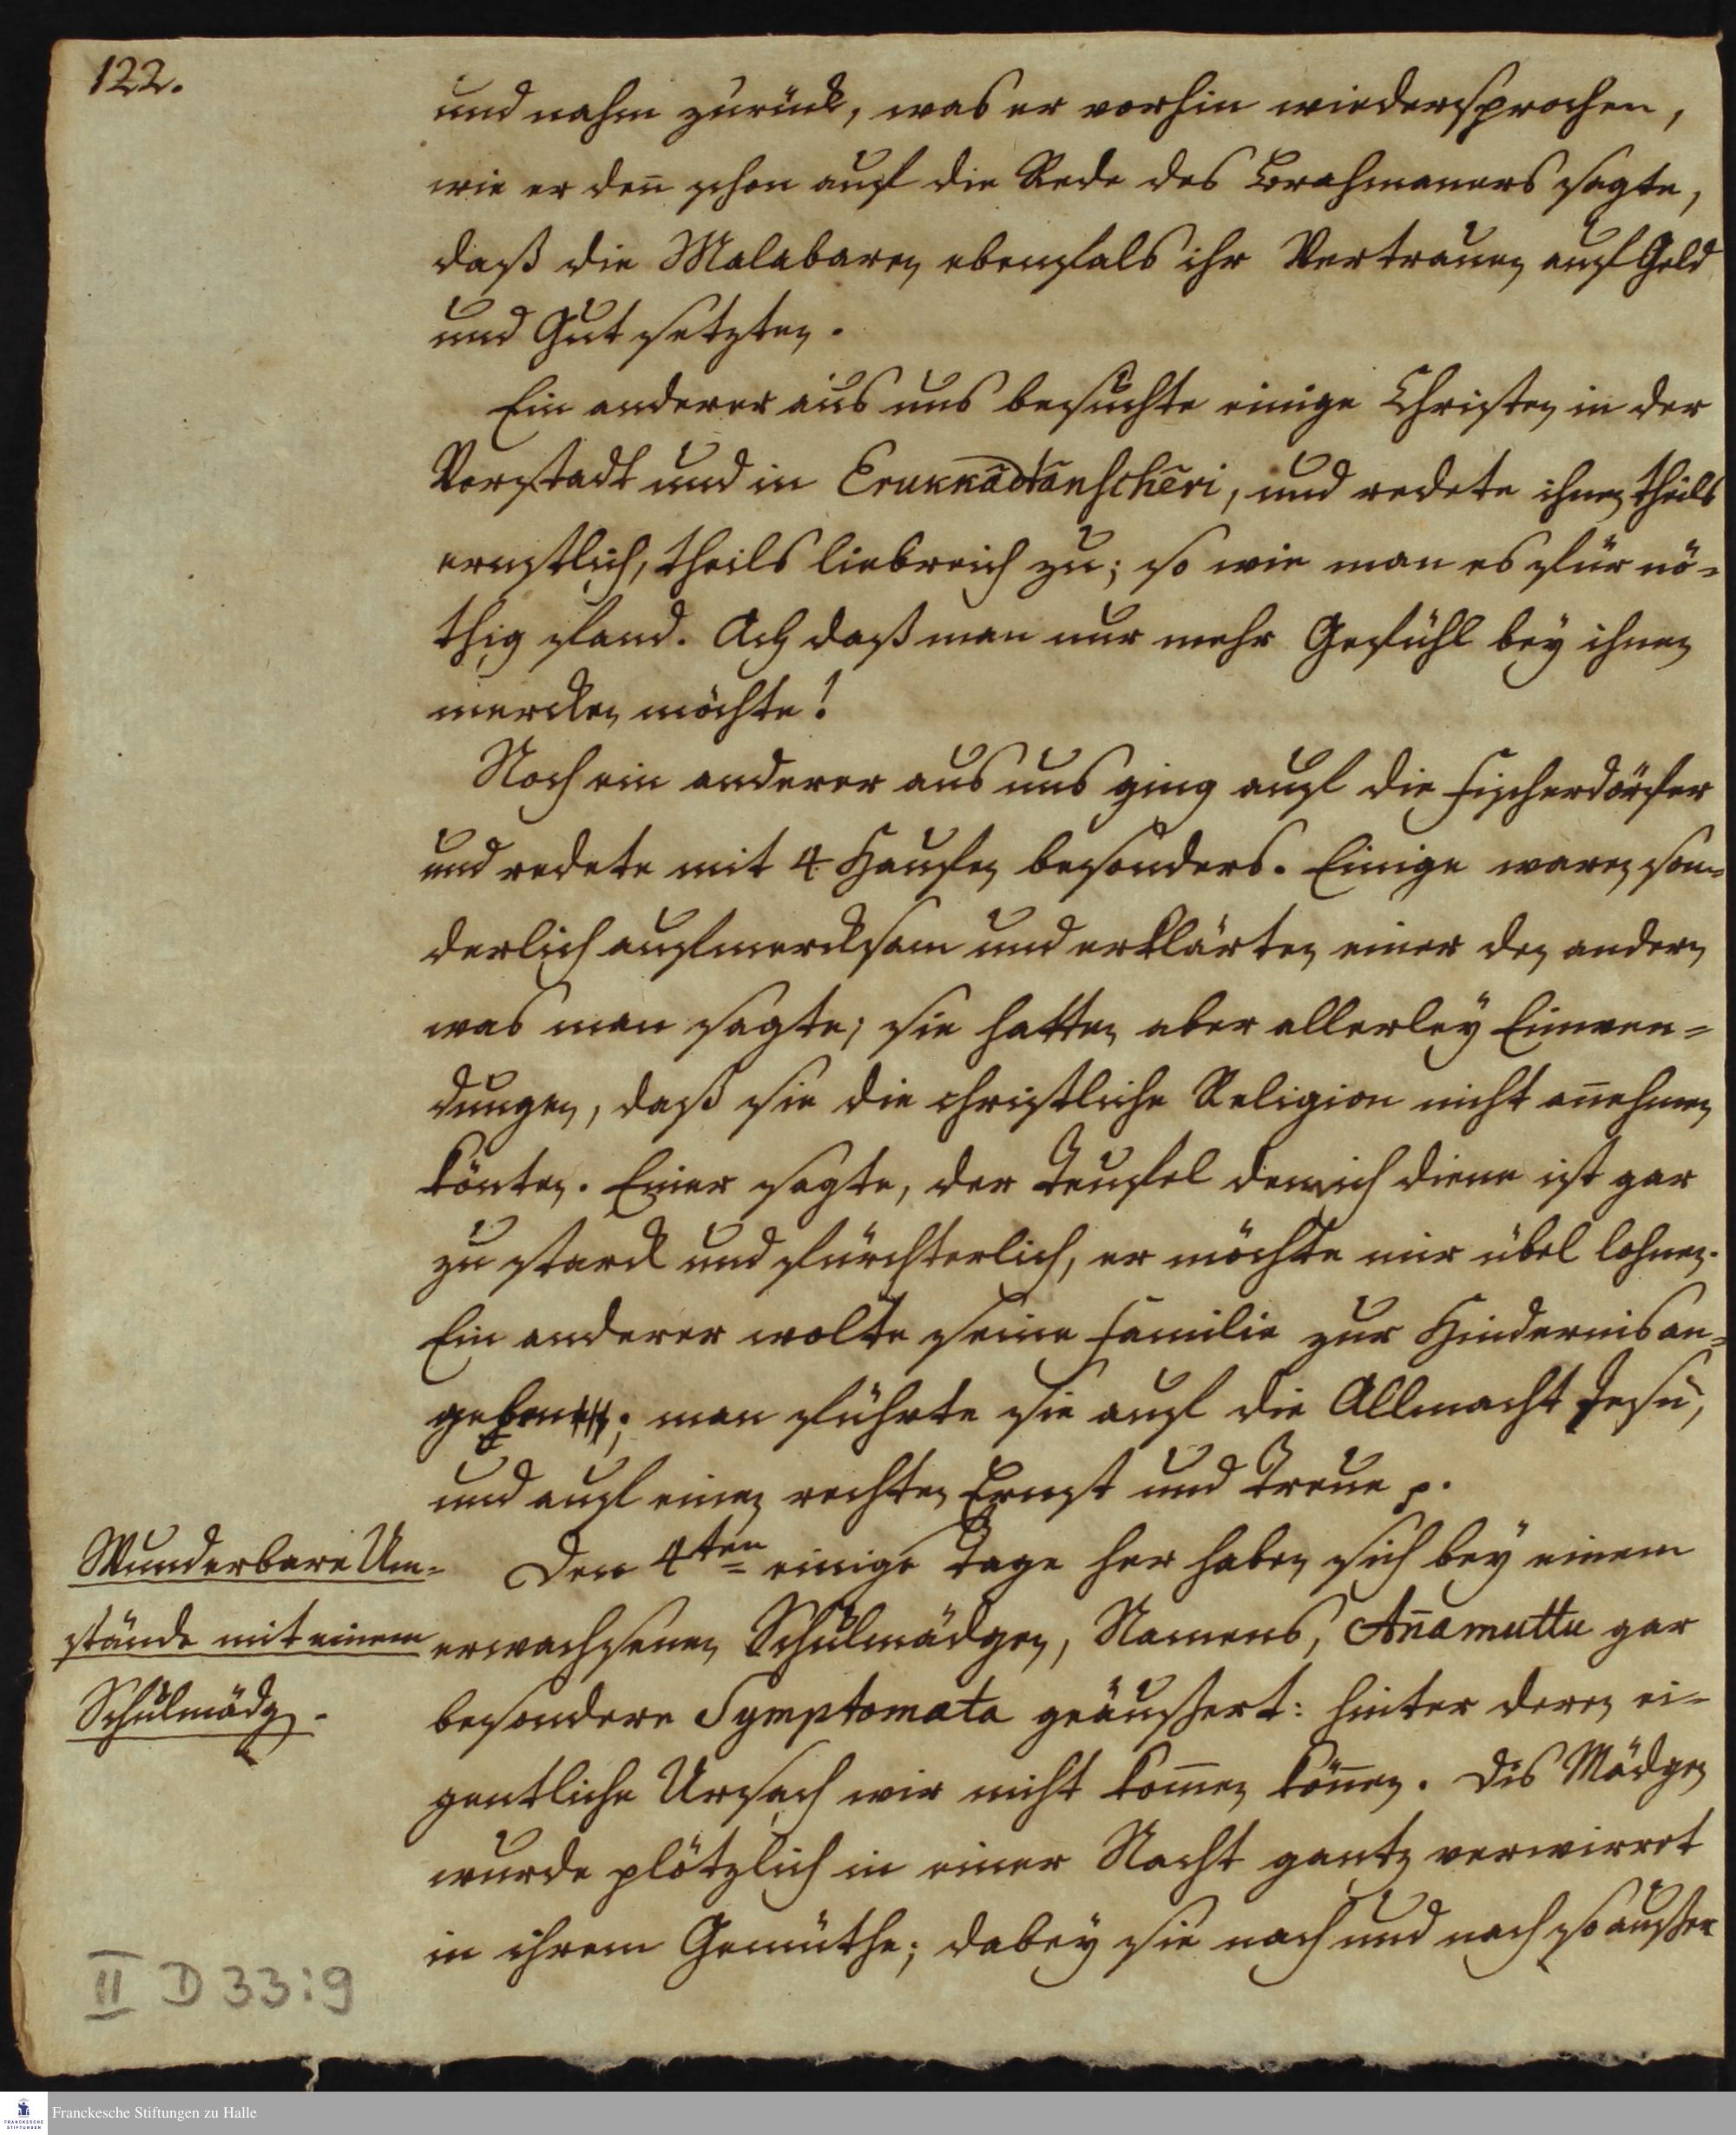 122.
und nahm zurück, was er vorhin wiedersprochen,
wie er den̄ schon auf die Rede des Brahmaners sagte,
daß die Malabaren ebenfals ihr Vertrauen auf Geld
und Gut setzten.
Ein anderer aus uns besuchte einige Christen in der
Vorstadt und in Erukkadtānschēri, und redete ihnen theils
ernstlich, theils liebreich zu; so wie man es für nö-
thig fand. Ach daß man nur mehr Gefühl bey ihnen
mercken möchte!
Noch ein anderer aus uns ging auf die Fischerdörfer
und redete mit 4 Haufen besonders. Einige waren son-
derlich aufmercksam und erklärten einer den andern
was man sagte; sie hatten aber allerley Einwen-
dungen, daß sie die christliche Religion nicht an̄ehmen
könten. Einer sagte, der Teufel dem ich diene ist gar
zu starck und fürchterlich, er möchte mir übel lohnen.
Ein anderer wolte seine Familie zur Hindernis an-
geben; man führte sie auf die Allmacht Jesu,
und auf einen rechten Ernst und Treue p.
Wunderbare Um-
stände mit einem
Schulmädgen.
Den 4ten einige Tage her haben sich bey einem
erwachsenen Schulmädgen, Namens, An̄amuttu gar
besondere Symptomata geäussert: hinter deren ei-
gentliche Ursach wir nicht kom̄en kön̄en. Dis Mädgen
wurde plötzlich in einer Nacht gantz verwirret
in ihrem Gemüthe; dabey sie nach und nach so äusser
II D 33:9
Franckesche Stiftungen zu Halle
FRANCKESCHE STIFTUNGEN